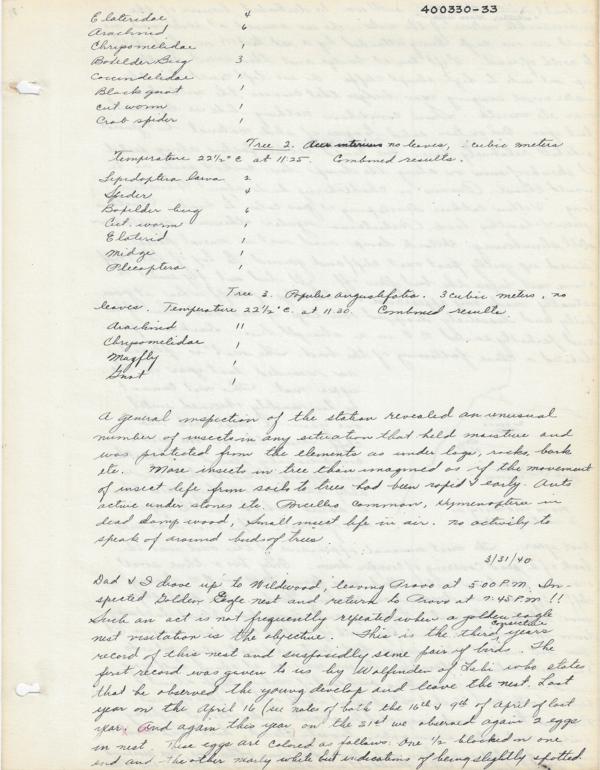 400330-33
Elateridae 4
Arachnid 6
Chrysomelidae 1
Boxelder Bug 3
Coccindelidae 1
Black gnat 1
cut worm 1
Crab spider 1
Tree 2. Acer interius no leaves, cubic meters
Temperature 22½° C at 11:25. Combined results.
Lepidoptera larva 2
Spider 4
Boxelder bug 6
Cut worm 1
Elaterid 1
Midge 1
Plecoptera 1
Tree 3. Populus angustifolia. 3 cubic meters, no
leaves. Temperature 22½° C. at 11:30. Combined results.
Arachnid 11
Chrysomelidae 1
Mayfly 1
Gnat 1
A general inspection of the station revealed an unusual
number of insects in any situation that held moisture and
was protected from the elements as under logs, rocks, bark
etc. More insects in tree than imagined as if the movement
of insect life from soils to trees had been rapid & early. Ants
active under stones etc. Porcellio common, Hymenoptera in
dead damp wood, small insect life in air. no activity to
speak of around buds of trees.
3/31/40
Dad & I drove up to Wildwood, leaving Provo at 5:00 P.M. In-
spected Golden Eagle nest and return to Provo at 7:45 P.M!!
Such an act is not frequently repeated when a golden eagle
nest visitation is the objective. This is the third consecutive years
record of this nest and supposidly same pair of birds. The
first record was given to us by Walfenden of Lehi who states
that he observed the young develop and leave the nest. Last
year on the April 16 (see notes of both the 16th & 9th of April of last
year. And again this year on the 31st we observed again 2 eggs
in nest. These eggs are colored as follows: One ½ blocked on one
end and the other nearly white but indications of being slightly spotted